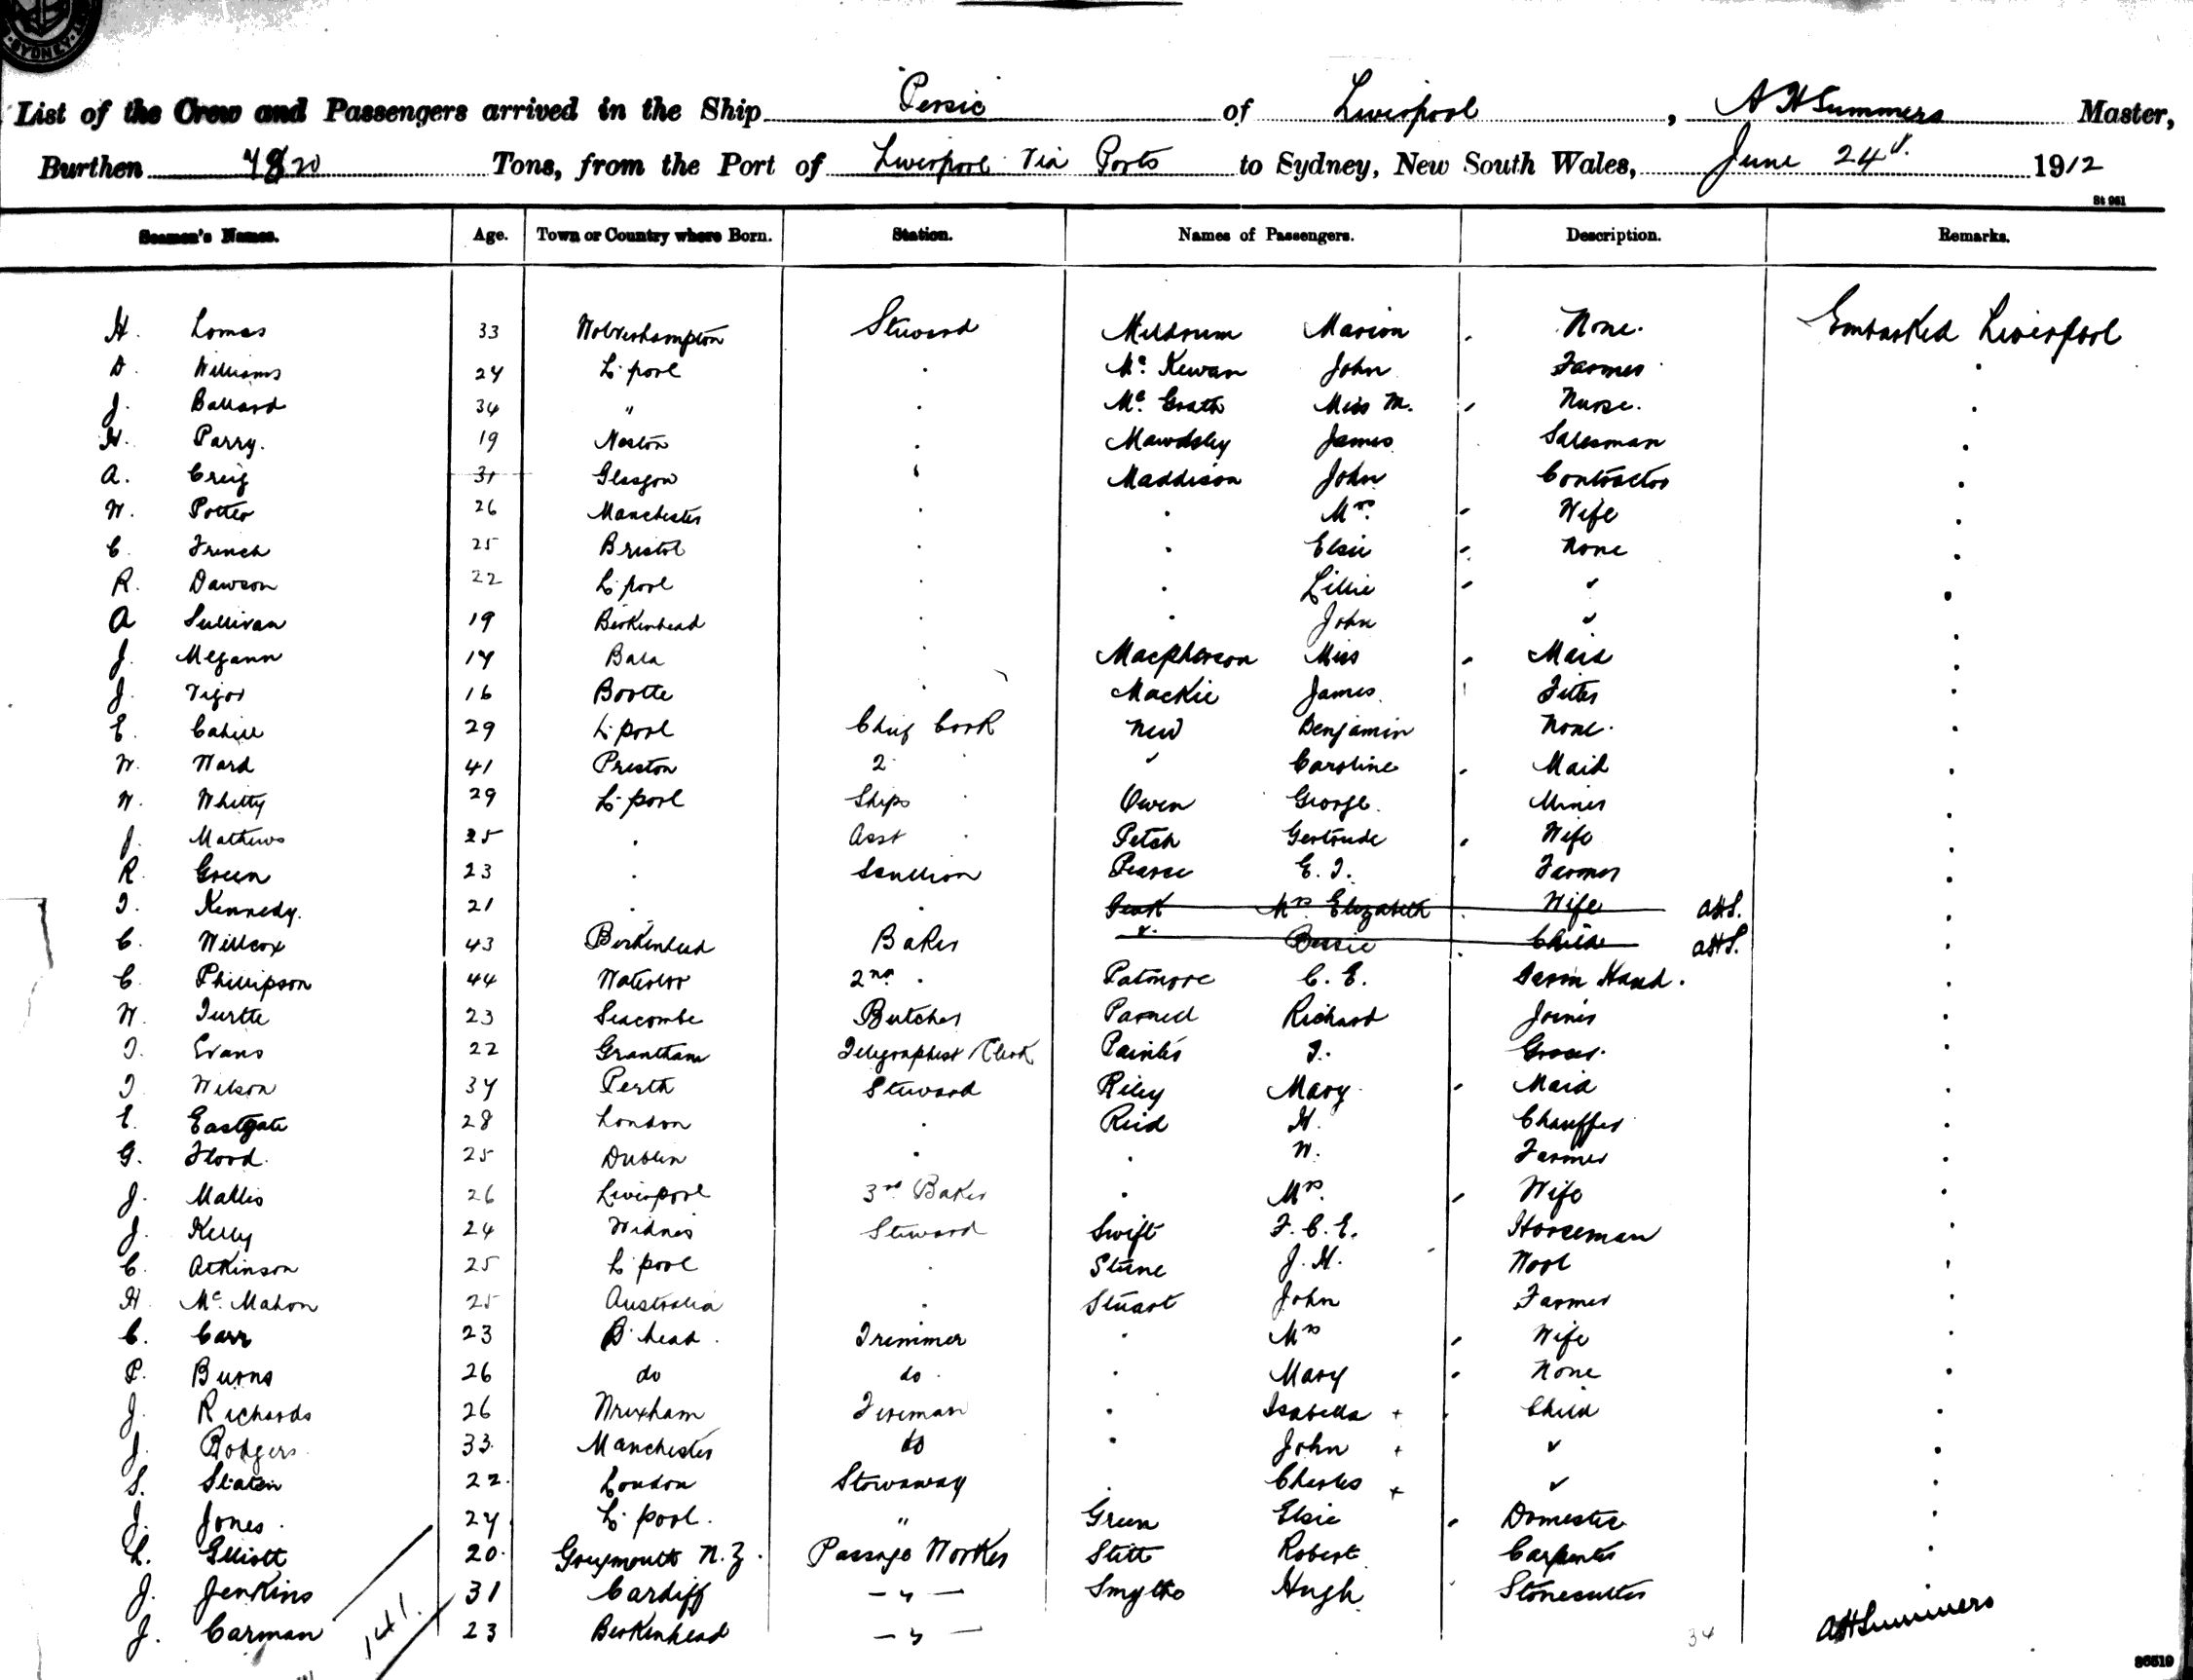 SYDNEY
List of the Crew and Passengers arrived in the Ship Persic of Liverpool, A H Summers Master,
Burthen Tons, from the Port of Liverpool Via Ports to Sydney, New South Wales, June 24 1912
St 961
Seamen's Names. Age. Town or Country where Born. Station. Names of Passengers. Description. Remarks.
H. Lomas 33 Wolverhampton Steward Meldrum Marion None. Embarked Liverpool
D. Williams 24 L'pool . Mc Kewan John Farmer .
J. Ballard 34 " . Mc Grath Miss M. Nurse. .
H. Parry. 19 Neston . Mawdsley James Salesman .
A. Creig 31 Glasgow . Maddison John Contractor .
W. Potter 26 Manchester . . Mrs. Wife .
C. French 25 Bristol . . Elsie None .
R. Dawson 22 L'pool . . Lillie " .
A Sullivan 19 Birkenhead . . John " .
J. Megann 17 Bala . Macpherson Miss Maid .
J. Vigor 16 Bootle . Mackie James Fitter .
E. Cahill 29 L'pool Chief Cook New Benjamin None. .
W. Ward 41 Preston 2 . " Caroline Maid .
W. Whitty 29 L'pool Ships . Owen George. Miner .
J. Mathews 25 . Asst . Petch Gertrude Wife .
R. Green 23 . Scullion Pearse E. J. Farmer .
T. Kennedy. 21 . . Peak Mrs Elizabeth Wife AHS. .
C. Willcox 43 Birkenhead Baker " Bessie Child AHS. .
C. Phillipson 44 Waterloo 2nd . Patmore C. E. Farm Hand. .
W. Turtle 23 Seacombe Butcher Parnell Richard Joiner .
T. Evans 22 Grantham Telegraphist Clerk Painter T. Grocer. .
T. Wilson 37 Perth Steward Riley Mary Maid .
E. Eastgate 28 London . Reid H. Chauffer .
G. Flood. 25 Dublin . . W. Farmer .
J. Mallis 26 Liverpool 3rd Baker . Mrs. Wife .
J. Kelly 24 Widnes Steward Swift F. C. E. Horseman .
C. Atkinson 25 L'pool . J. H. Wool .
H. Mc. Mahon 25 Australia . Stuart John Farmer .
C. Carr 23 B'head. Trimmer . Mrs Wife .
P. Burns 26 do do . . Mary None .
J. Richards 26 Wrexham Fireman . Isabella + Child .
J. Rodgers 33. Manchester do . John + " .
S. 22. London Stowaway . Charles + " .
J. Jones. 27 L'pool. " Green Elsie Domestic .
L. Elliott 20. Greymouth N.Z. Passage Worker Stitt Robert Carpenter .
J. Jenkins 31 Cardiff — " — Hugh Stonecutter .
J. Carman 23 Birkenhead — " — 34 AHSummers
141.
86519